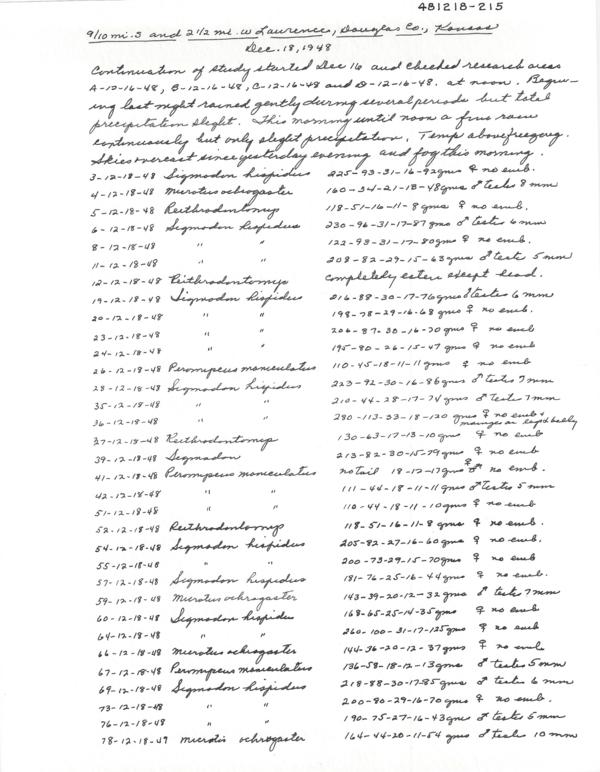 481218-215
9/10 mi. S and 2 1/2 mi. W Lawrence, Douglas Co., Kansas
Dec. 18, 1948
Continuation of study started Dec 16 and checked research areas
A-12-16-48, B-12-16-48, C-12-16-48 and D-12-16-48. at noon. Beginn-
ing last night rained gently during several periods but total
precipitation slight. This morning until noon a fine rain
continuously but only slight precipitation. Temp above freezing.
Skies overcast since yesterday evening and fog this morning.
3-12-18-48 Sigmodon hispidus 225-93-31-16-92gms ♀ no emb.
4-12-18-48 Microtus ochrogaster 160-34-21-13-48gms ♂ testes 8 mm
5-12-18-48 Reithrodontomys 118-51-16-11-8gms ♀ no emb.
6-12-18-48 Sigmodon hispidus 230-96-31-17-87gms ♂ testes 6mm
8-12-18-48 " " 122-93-31-17-80gms ♀ no emb.
11-12-18-48 " " 208-82-29-15-63gms ♂ testes 5 mm
12-12-18-48 Reithrodontomys completely eaten except head.
19-12-18-48 Sigmodon hispidus 216-88-30-17-76gms ♂ testes 6 mm
20-12-18-48 " " 198-78-29-16-68 gms ♀ no emb.
23-12-18-48 " " 206-87-30-16-70 gms ♀ no emb
24-12-18-48 " " 195-80-26-15-47 gms ♀ no emb
26-12-18-48 Peromyscus maniculatus 110-45-18-11-11 gms ♀ no emb
28-12-18-48 Sigmodon hispidus 223-92-30-16-86gms ♂ testes 7mm
35-12-18-48 " " 210-44-28-17-74 gms ♂ testes 7mm
36-12-18-48 " " 280-113-33-18-120 gms ♀ no emb +
mange on belly
37-12-18-48 Reithrodontomys 130-63-17-13-10gms ♀ no emb
39-12-18-48 Sigmodon 213-82-30-15-79gms ♀ no emb
41-12-18-48 Peromyscus maniculatus no tail 18-12-17gms ♀ no emb.
42-12-18-48 " " 111-44-18-11-11gms ♂ testes 5 mm
51-12-18-48 " " 110-44-18-11-10gms ♀ no emb
52-12-18-48 Reithrodontomys 118-51-16-11-8 gms ♀ no emb.
54-12-18-48 Sigmodon hispidus 205-82-27-16-60gms ♀ no emb.
55-12-18-48 " " 200-73-29-15-70gms ♀ no emb
57-12-18-48 Sigmodon hispidus 181-76-25-16-44gms ♀ no emb.
59-12-18-48 Microtus ochrogaster 143-39-20-12-32gms ♂ testes 7mm
60-12-18-48 Sigmodon hispidus 168-65-25-14-35gms ♀ no emb
64-12-18-48 " " 260-100-31-17-125gms ♀ no emb
66-12-18-48 Microtus ochrogaster 144-36-20-12-37gms ♀ no emb
67-12-18-48 Peromyscus maniculatus 136-58-18-12-13gms ♂ testes 5mm
69-12-18-48 Sigmodon hispidus 218-88-30-17-85gms ♂ testes 6 mm
73-12-18-48 " " 200-80-29-16-70gms ♀ no emb.
76-12-18-48 " " 190-75-27-16-43gms ♂ testes 5mm
78-12-18-49 microtis ochrogaster 164-44-20-11-54 gms ♂ testes 10mm